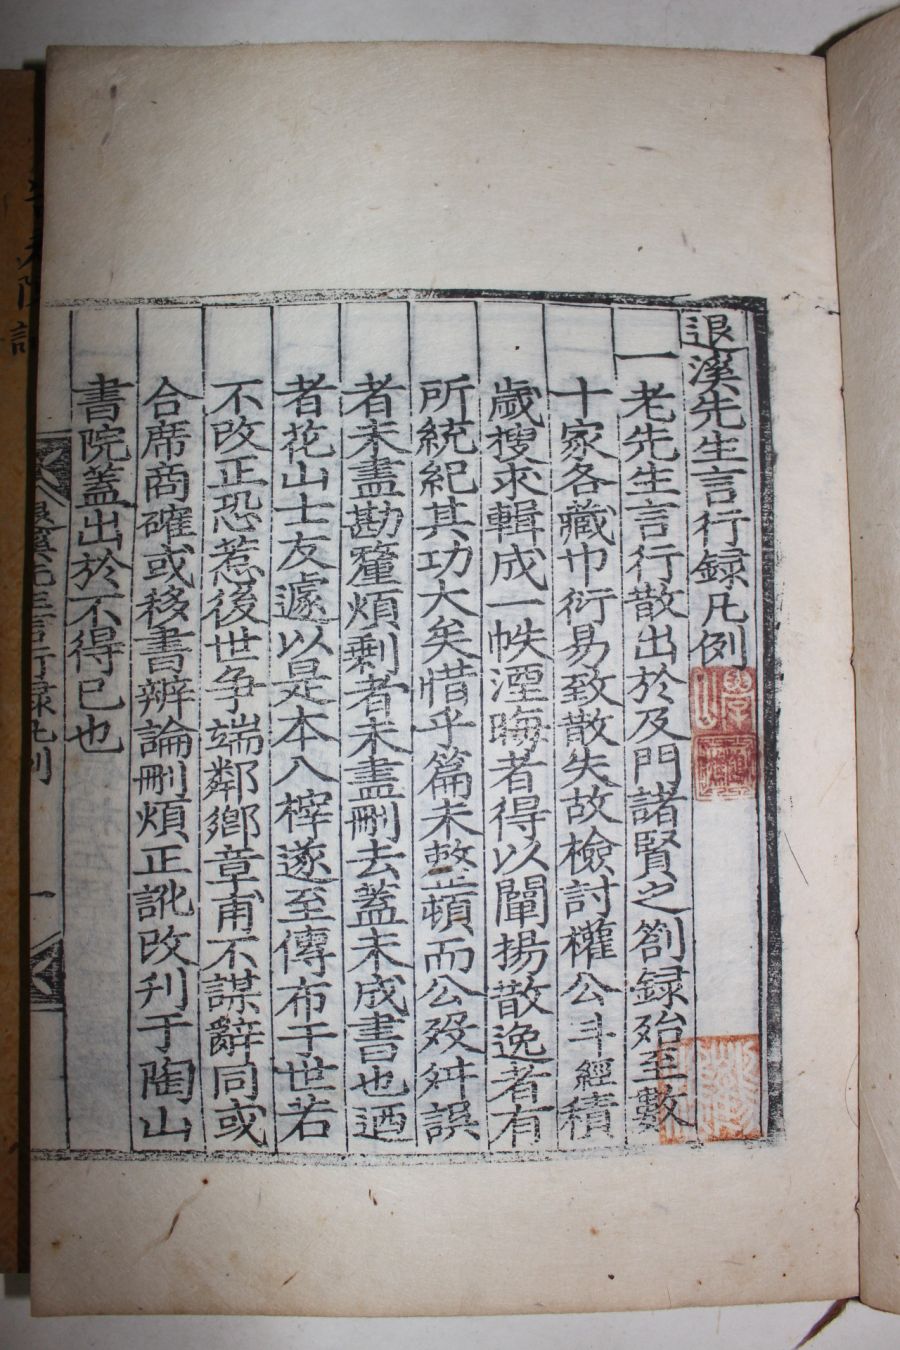 退溪先生言行録凡例
一老先生言行散出於及門諸賢之劄録殆至數
十家各藏巾衍易致散失故檢討權公斗經積
歲搜求輯成一帙湮晦者得以闡揚散逸者有
所統紀其功大矣惜乎篇未整頓而公歿舛誤
者未盡勘釐煩剩者未盡刪去蓋未成書也迺
者花山士友遽以是本入榟遂至傳布于世若
不改正恐惹後世争端鄰鄉章甫不謀辭同或
合席商確或移書辨論刪煩正訛改刋于陶山
書院蓋出於不得已也
退溪先生言行録凡例 一